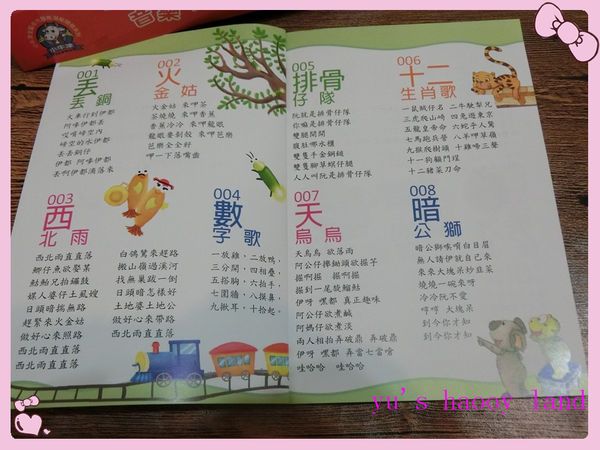 小牛津
001
丟
丟銅
火車行到伊都
阿嗲伊都丟
哎唷磅空內
磅空的水伊都
丟丟銅仔
伊都 阿嗲伊都
丟啊伊都滴落來
002
火
金姑
火金姑 來呷茶
茶燒燒 來呷香蕉
香蕉冷冷 來呷龍眼
龍眼要剝殼 來呷芭樂
芭樂全全籽
呷一下落嘴齒
003
西
北雨
西北雨直直落
鯽仔魚欲娶某
鮕鮘兄拍鑼鼓
媒人婆仔土虱嫂
日頭暗揣無路
趕緊來火金姑
做好心來照路
西北雨直直落
西北雨直直落
白鴒鷥來趕路
搬山嶺過溪河
找無巢跋一倒
日頭暗怎樣好
土地婆土地公
做好心來帶路
西北雨直直落
西北雨直直落
004
數
字歌
一放雞，二放鴨，
三分開，四相疊，
五搭胸，六拍手，
七圍牆，八摸鼻，
九揪耳，十拾起，
005
排骨
仔隊
阮就是排骨仔隊
你嘛是排骨仔隊
雙腿開開
腹肚哪水櫃
雙隻手金鋼鎚
雙隻腳草蜢仔腿
人人叫阮是排骨仔隊
006
十二
生肖歌
一鼠賊仔名 二牛駛犁兄
三虎爬山崎 四兔遊東京
五龍皇帝命 六蛇乎人驚
七馬跑兵營 八羊呷草嶺
九猴爬樹頭 十雞啼三聲
十一狗顧門埕
十二豬菜刀命
007
天
烏烏
天烏烏 欲落雨
阿公仔攑鋤頭欲掘芋
掘啊掘 掘啊掘
掘到一尾旋鰡鮕
伊呀 嘿都 真正趣味
阿公仔欲煮鹹
阿媽仔欲煮淡
兩人相拍弄破鼎 弄破鼎
伊呀 嘿都 弄當七當嗆
哇哈哈 哇哈哈
008
暗
公獅
暗公獅唉唷白目眉
無人請伊就自己來
來來大塊呆炒韭菜
燒燒一碗來呀
冷冷阮不愛
哼哼 大塊呆
到今你才知
到今你才知
yu's haooy land